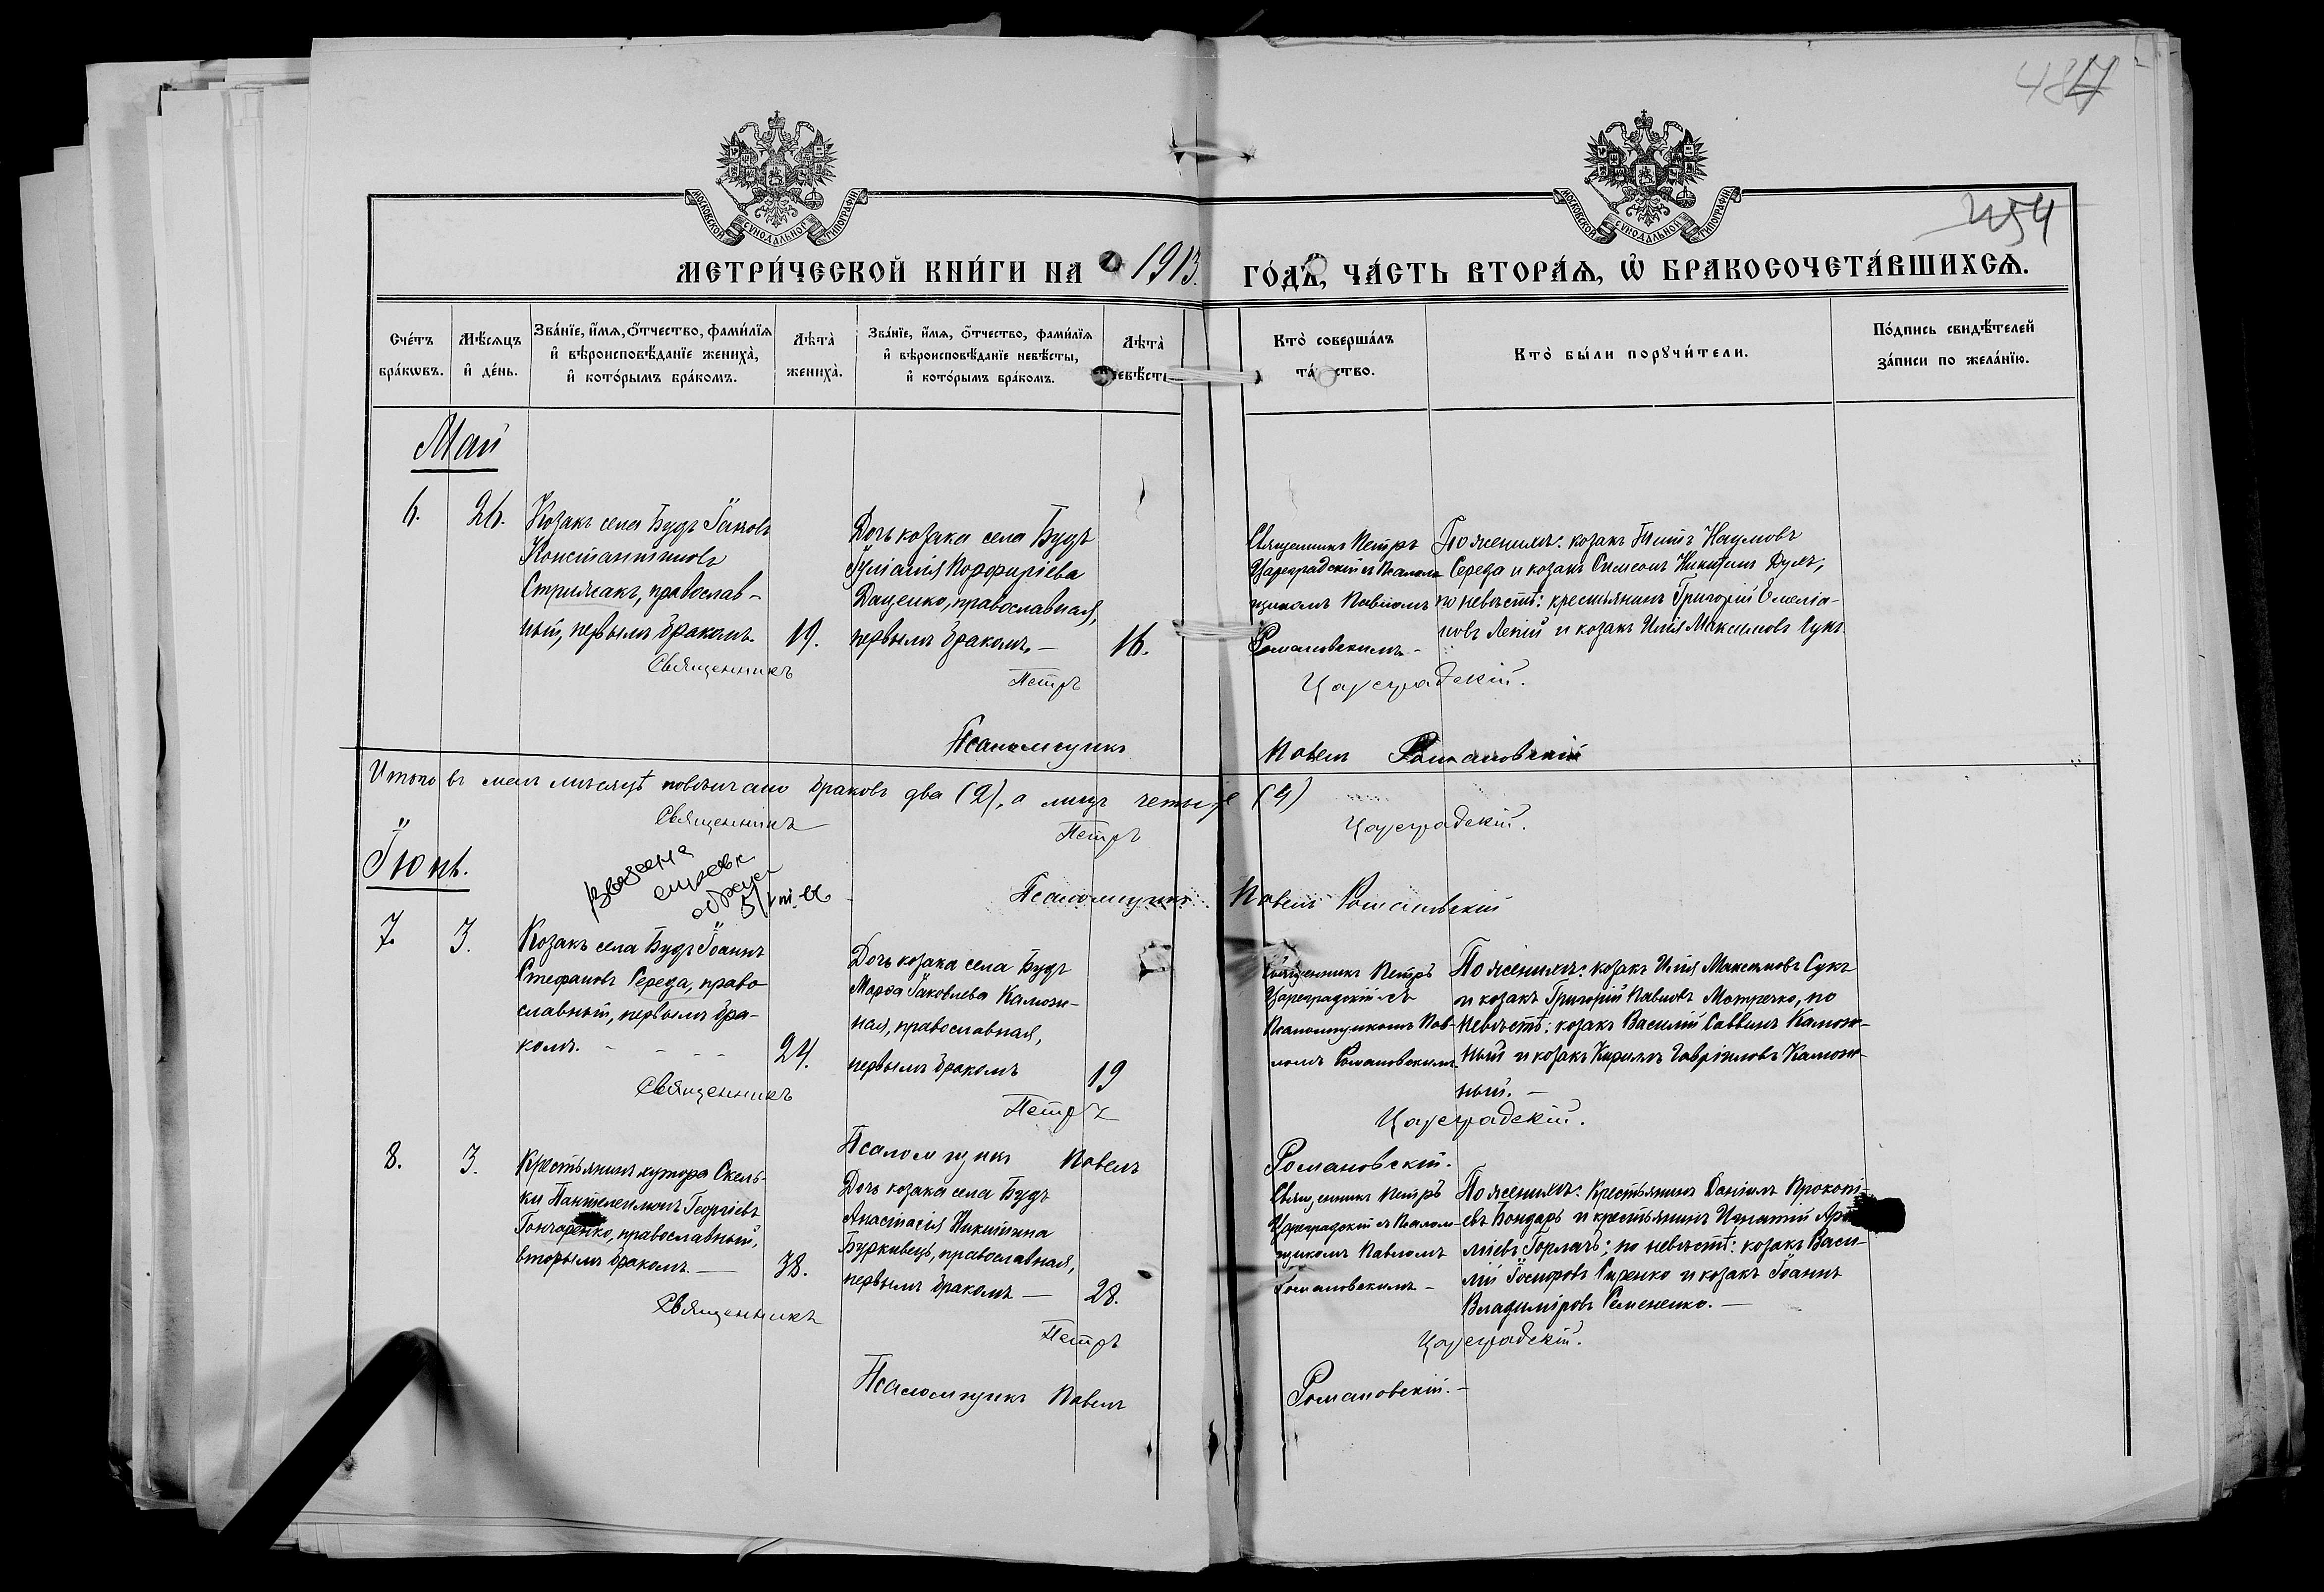 487
254
МОСКОВСКОЙ СѴНОДАЛЬНОЙ ТИПОГРАФІИ
МОСКОВСКОЙ СѴНОДАЛЬНОЙ ТИПОГРАФІИ
МЕТРИ́ЧЕСКОЙ КНИ́ГИ НА 1913 ГО́ДЪ, ЧА́СТЬ ВТОРА́Ѧ, Ѡ҆ БРАКОСОЧЕТА́ВШИХСѦ.
Сче́тъ
бра́кѡвъ.
Мѣ́сѧцъ
и҆ де́нь.
Зва́нїе, и҆́мѧ, ѻ҆́тчество, фами́лїѧ
и҆ вѣроисповѣ́данїе жениха̀,
и҆ кото́рымъ бра́комъ.
Лѣта̀
жениха̀.
Зва́нїе, и҆́мѧ, ѻ҆́тчество, фами́лїѧ
и҆ вѣроисповѣ́данїе невѣ́сты,
и҆ кото́рымъ бра́комъ.
Лѣта̀
невѣ́сты
Кто̀ соверша́лъ
та́ ство.
Кто̀ бы́ли порꙋчи́тели.
По́дпись свидѣ́телей
за́писи по жела́нїю.
Май
6.
26.
Козакъ села Будъ Іаковъ
Константиновъ
Стрижакъ, православ-
ный, первымъ бракомъ.
19.
Дочь козака села Будъ
Іуліанія Порфиріева
Даценко, православная,
первымъ бракомъ. —
16.
Священникъ Петръ
Цареградскій съ Псалом
щикомъ Павломъ
Романовскимъ. -
По женихѣ: козакъ Титъ Наумовъ
Середа и козакъ Симеонъ Никитинъ Думъ;
по невѣстѣ: крестьянинъ Григорій Емеліа-
новъ Лепій и козакъ Илія Максимовъ Сукъ.
Священникъ Петръ Цареградскій.
Псаломщикъ Павелъ Романовскій
Итого въ маѣ мѣсяцѣ повѣнчано браковъ два (2), а лицъ четыре (4)
Священникъ Петръ Цареградскій.
Іюнь.
Псаломщикъ Павелъ Романовскій
7.
3.
Козакъ села Будъ Іоаннъ
Стефановъ Середа, право
славный, первымъ бра-
комъ. - - - -
24.
Дочь козака села Будъ
Марѳа Іаковлева Калюж-
ная, православная,
первымъ бракомъ
19
Священникъ Петръ
Цареградскій съ
Псаломщикомъ Пав-
ломъ Романовскимъ.
По женихѣ: козакъ Илія Максимовъ Сукъ
и козакъ Григорій Павловъ Мотречко, по
невѣстѣ: козакъ Василій Саввинъ Калюж-
ный и козакъ Кириллъ Гавріиловъ Калюж-
ный. —
Священникъ Петръ Цареградскій.
Псаломщикъ Павелъ Романовскій.
8.
3.
Крестьянинъ хутора Скель-
ки Пантелеимонъ Георгіевъ
Гончаренко, православный,
вторымъ бракомъ. —
38.
Дочь козака села Будъ
Анастасія Никитина
Бурковецъ, православная,
первымъ бракомъ —
28.
Священникъ Петръ
Цареградскій съ Псалом
щикомъ Павломъ
Романовскимъ —
По женихѣ: Крестьянинъ Даніилъ Прокопі-
евъ Бондарь и крестьянинъ Игнатій Арте
міевъ Горлачъ; по невѣстѣ: козакъ Васи-
лій Іосифовъ Сиренко и козакъ Іоаннъ
Владиміровъ Семененко. —
Священникъ Петръ Цареградскій.
Псаломщикъ Павелъ Романовскій. -